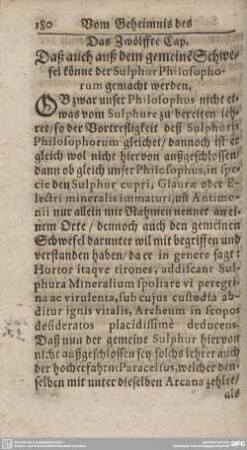 180 Vom Geheimnis des
Das Zwölffte Cap.
Daß auch auß dem gemeinē Schwe-
fel könne der Sulphur Philosopho-
rum gemacht werden.
OBzwar unser Philosophus nicht et-
was vom Sulphure zu bereiten leh-
ret/so der Vortrefligkeit deß Sulphuris
Philosophorum gleichet/dannoch ist er
gleich wol nicht hiervon außgeschlossen/
dann ob gleich unser Philosophus, in spe-
cie den Sulphur cupri, Glauræ oder E-
lectri mineralis immaturi, uñ Antimo-
nii nur allein mit Nahmen nennet an ei-
nem Orte/ dennoch auch den gemeinen
Schwefel darunter wil mit begriffen und
verstanden haben/da er in genere sagt:
Hortor itaqve tirones, addiscant Sul-
phura Mineralium spoliare vi peregri-
na ac virulenta, sub cujus custodia ab-
ditur ignis vitalis, Archeum in scopos
desideratos placidissimè deducens.
Daß nun der gemeine Sulphur hiervon
nicht außgeschlossen sey solchs lehret auch
der hocherfahrne Paracelsus, welcher den-
selben mit unter dieselben Arcana zehlet/
als